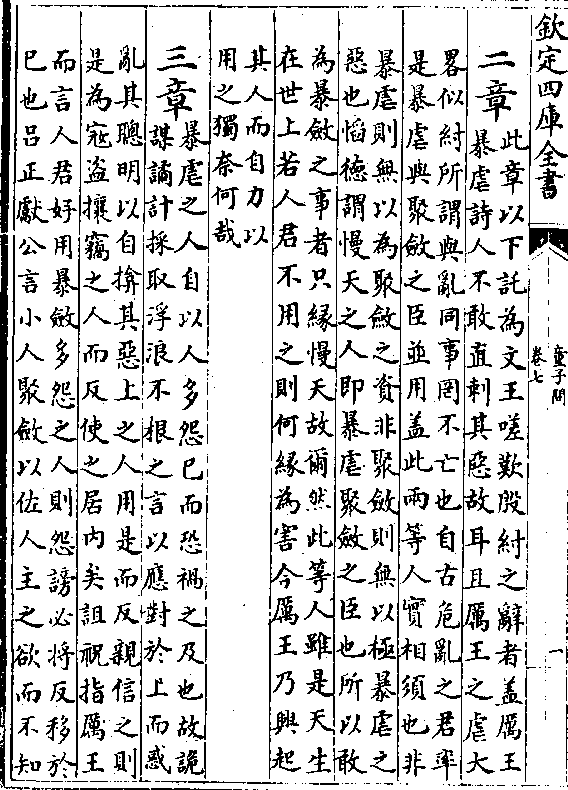 欽定四庫全書
童子問
卷七
一
二章
此章以下託為文王嗟歎殷紂之辭者盖厲王
暴虐詩人不敢直刺其惡故耳且厲王之虐大
畧似紂所謂與亂同事罔不亡也自古危亂之君率
是暴虐與聚斂之臣並用盖此兩等人實相須也非
暴虐則無以為聚斂之資非聚斂則無以極暴虐之
惡也慆德謂慢天之人即暴虐聚斂之臣也所以敢
為暴斂之事者只緣慢天故爾然此等人雖是天生
在世上若人君不用之則何緣為害今厲王乃興起
其人而自力以
用之獨奈何哉
三章
暴虐之人自以人多怨已而恐禍之及也故詭
謀譎計採取浮浪不根之言以應對於上而惑
亂其聰明以自揜其惡上之人用是而反親信之則
是為宼盗攘竊之人而反使之居内矣詛祝指厲王
而言人君好用暴斂多怨之人則怨謗必将反移於
已也吕正獻公言小人聚斂以佐人主之欲而不知